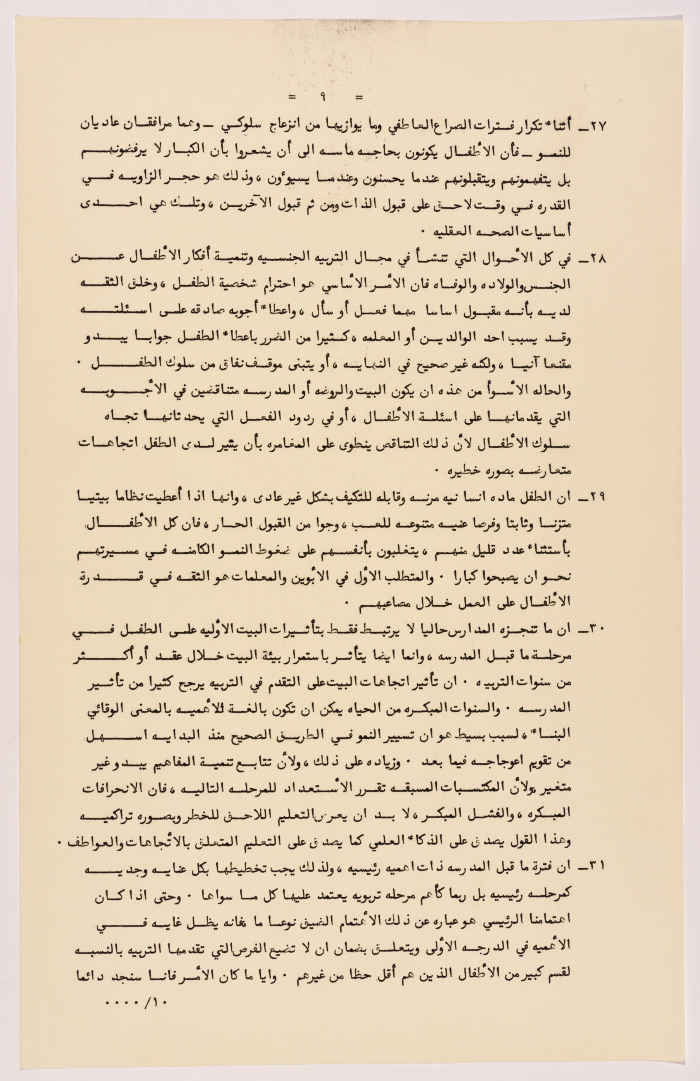 = ٩ =
٢٧ـ أثناء تكرار فترات الصراع العاطفي وما يوازيها من انزعاج سلوكي ـ وهما مرافقان عاديان
للنمو ـ فأن الأطفال يكونون بحاجه ماسه الى أن يشعروا بأن الكبار لا يرفضونهم
بل يتفهمونهم ويتقبلونهم عندما يحسنون وعندما يسيؤون ، وذلك هو حجر الزاويه في
القدره في وقت لاحق على قبول الذات ومن ثم قبول الآخرين ، وتلك هي احدى
أساسيات الصحه العقليه ٠
٢٨ـ في كل الأحوال التي تنشأ في مجال التربيه الجنسيه وتنمية أفكار الأطفال عن
الجنس والولاده والوفاه فان الأمر الأساسي هو احترام شخصية الطفل ، وخلق الثقه
لديه بأنه مقبول اساسا مهما فعل أو سأل ، واعطاء أجوبه صادقه على اسئلته
وقد يسبب احد الوالدين أو المعلمه ، كثيرا من الضرر باعطاء الطفل جوابا يبدو
مقنعا آنيا ، ولكنه غير صحيح في النهايه ، أو يتبنى موقف نفاق من سلوك الطفل ٠
والحاله الأسوأ من هذه ان يكون البيت والروضه أو المدرسه متناقضين في الأجوبه
التي يقدمانها على اسئلة الأطفال ، أو في ردود الفعل التي يحدثانها تجاه
سلوك الأطفال لأن ذلك التناقص ينطوى على المغامره بأن يثير لدى الطفل اتجاهات
متعارضه بصوره خطيره ٠
٢٩ـ ان الطفل ماده انسانيه مرنه وقابله للتكيف بشكل غير عادى ، وانها اذا أعطيت نظاما بيتيا
متزنا وثابتا وفرصا غنيه متنوعه للعب ، وجوا من القبول الحار ، فان كل الأطفال
بأستثناء عدد قليل منهم ، يتغلبون بأنفسهم على ضغوط النمو الكامنه في مسيرتهم
نحو ان يصبحوا كبارا ٠ والمتطلب الأول في الأبوين والمعلمات هو الثقه في قدرة
الأطفال على العمل خلال مصاعبهم ٠
٣٠ـ ان ما تنجزه المدارس حاليا لا يرتبط فقط بتأثيرات البيت الأوليه على الطفل في
مرحلة ما قبل المدرسه ، وانما ايضا يتأثر باستمرار بيئة البيت خلال عقد أو أكثر
من سنوات التربيه ٠ ان تأثير اتجاهات البيت على التقدم في التربيه يرجح كثيرا من تأثير
المدرسه ٠ والسنوات المبكره من الحياه يمكن ان تكون بالغة للأهميه بالمعنى الوقائي
البناء ، لسبب بسيط هو ان تسيير النمو في الطريق الصحيح منذ البدايه اسهل
من تقويم اعوجاجه فيما بعد ٠ وزياده على ذلك ، ولأن تتابع تنمية المفاهيم يبدو غير
متغير ,ولأن المكتسبات المسبقه تقرر الأستعداد للمرحله التاليه ، فان الانحرافات
المبكره ، والفشل المبكر ، لا بد ان يعرض التعليم اللاحق للخطر وبصوره تراكميه
وهذا القول يصدق على الذكاء العلمي كما يصدق على التعليم المتعلق بالاتجاهات والعواطف ٠
٣١ـ ان فترة ما قبل المدرسه ذات اهميه رئيسيه ، ولذلك يجب تخطيطها بكل عنايه وجديه
كمرحله رئيسيه بل ربما كأهم مرحله تربويه يعتمد عليها كل ما سواها ٠ وحتى اذا كان
اهتمامنا الرئيسي هو عباره عن ذلك الأهتمام الضيق نوعا ما فانه يظل غايه في
الأهميه في الدرجه الأولى ويتعلق بضمان ان لا تضيع الفرص التي تقدمها التربيه بالنسبه
لقسم كبير من الأطفال الذين هم أقل حظا من غيرهم ٠ وايا ما كان الأمر فانا سنجد دائما
١٠/ ٠٠٠٠